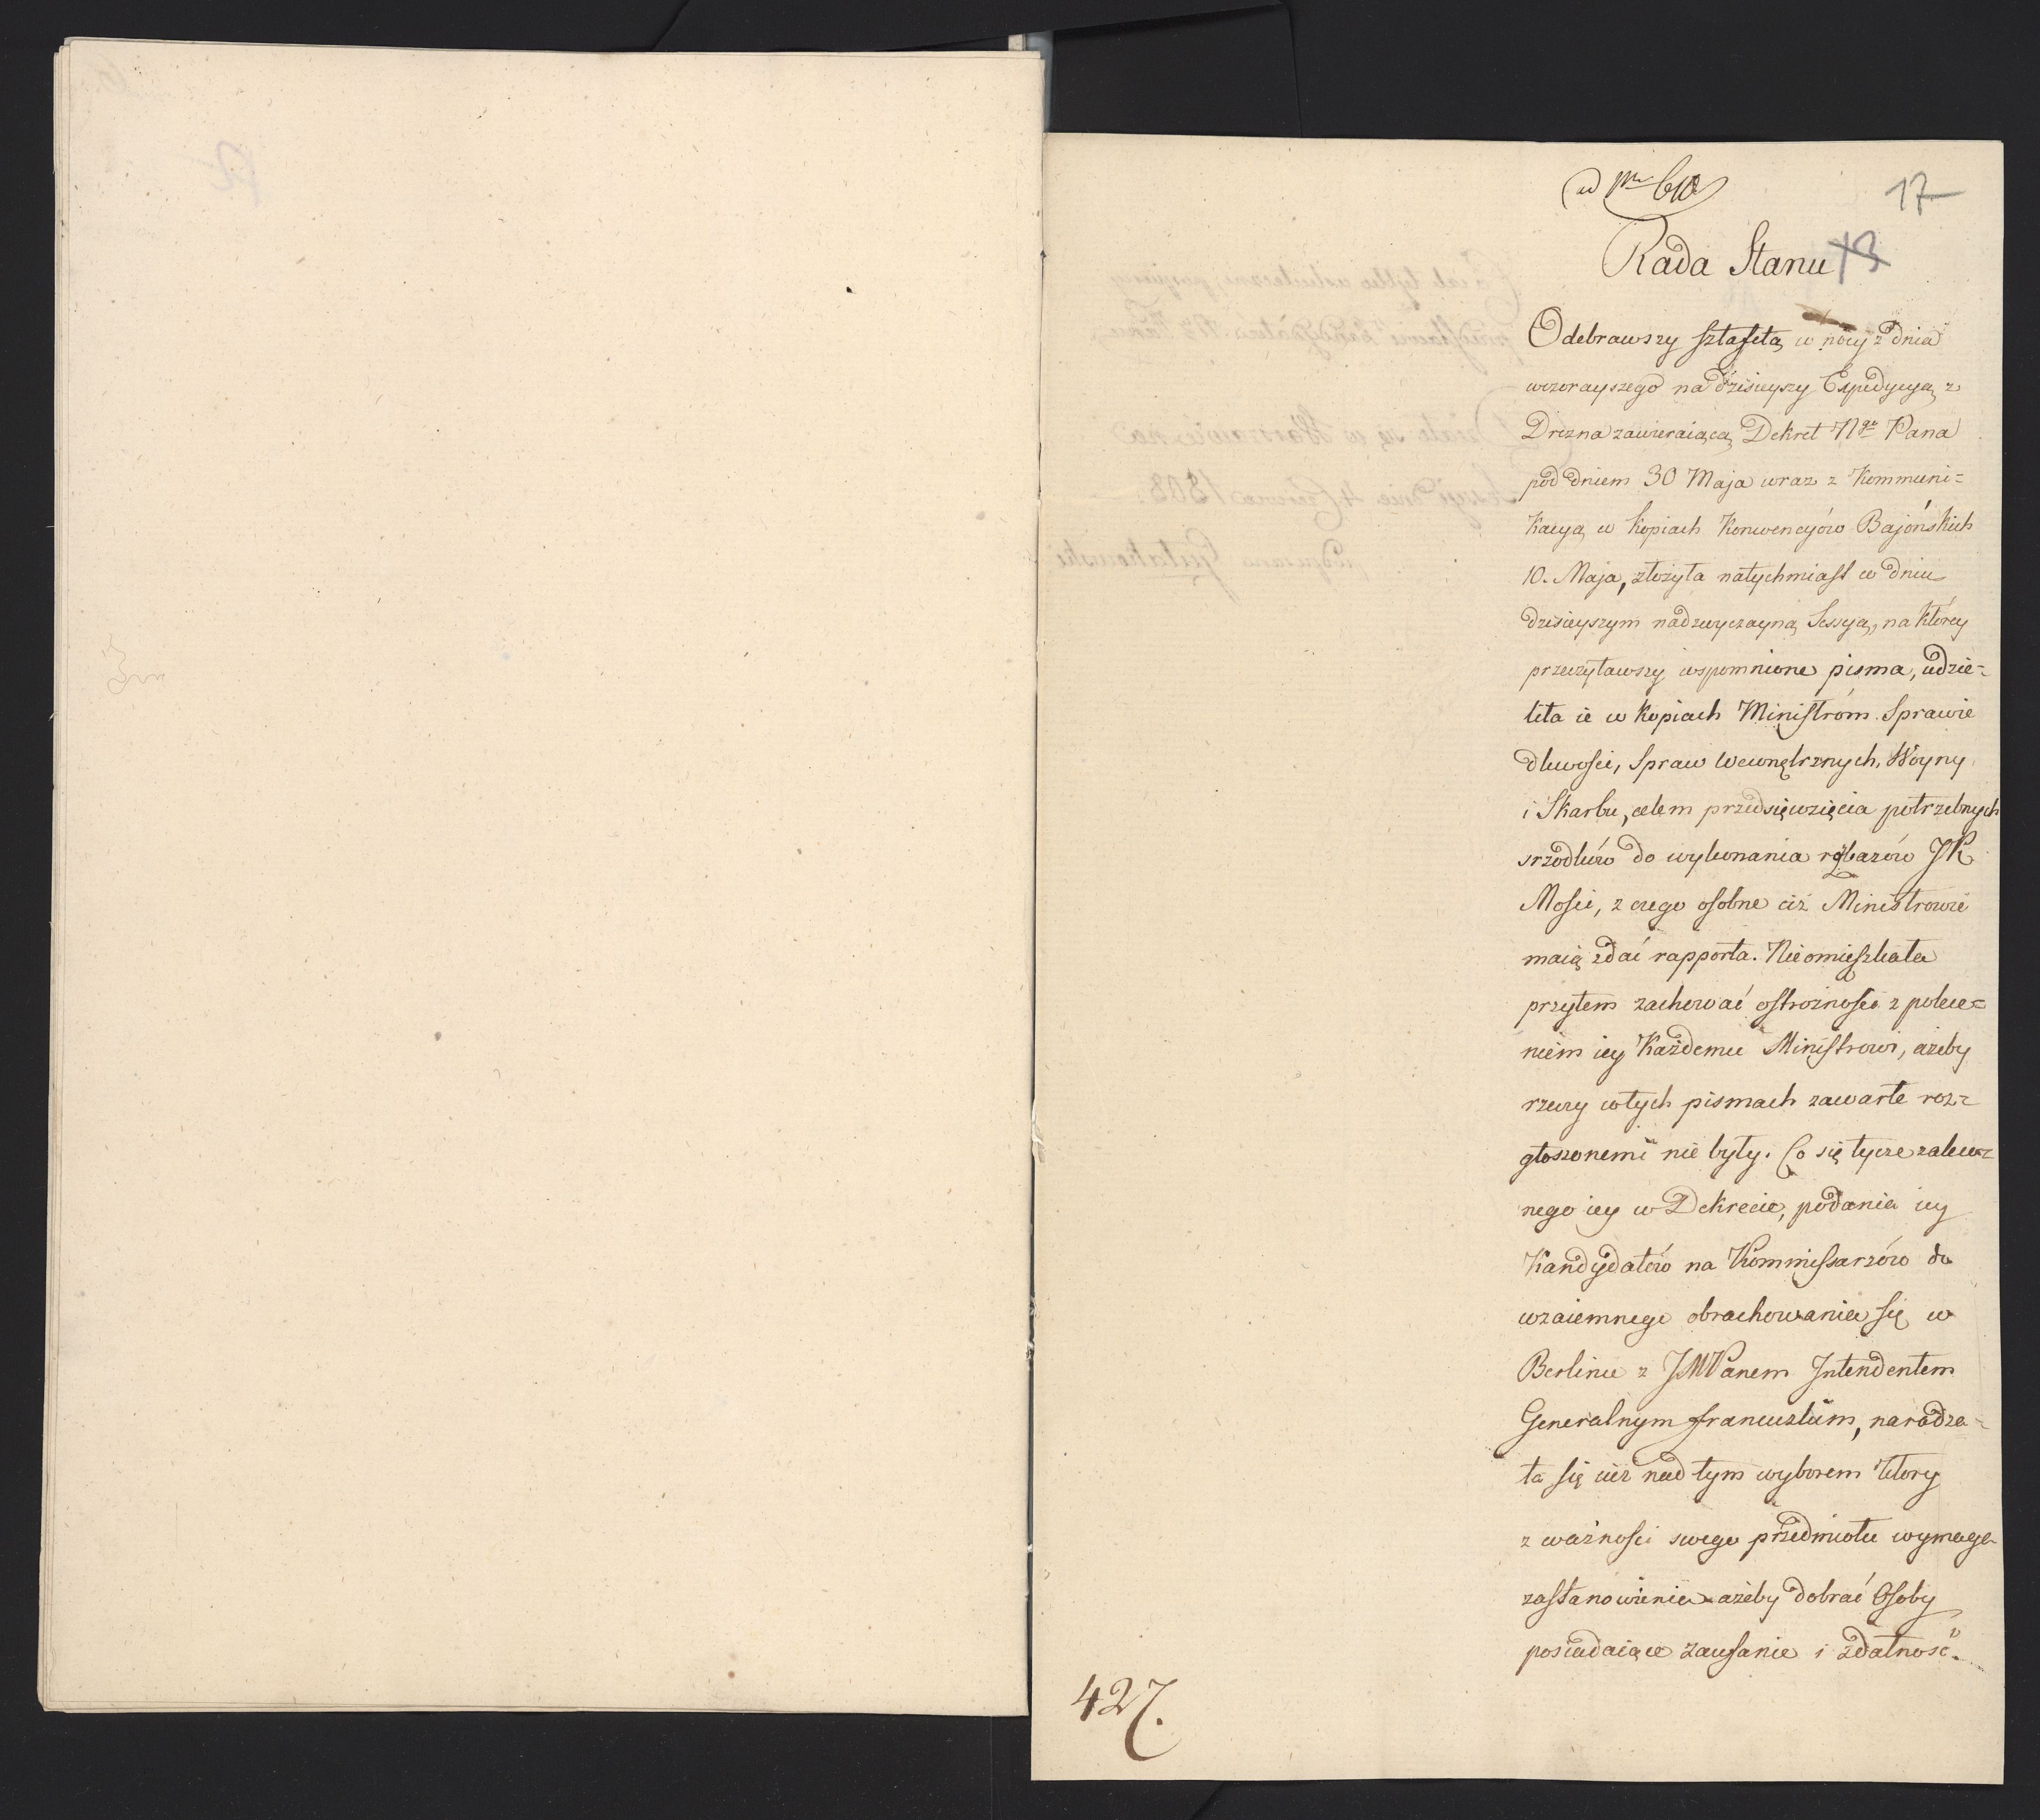 ad Nr 610
17
Rada Stanu
13
Odebrawszy sztafetą w nocy z dnia
wczorayszego na dzisieyszy Expedycyą z
Drezna zawieraiącą Dekret Ngo Pana
pod dniem 30 Maja wraz z Kommuni=
kacyą w kopiach Konwencyów Bajońskich
10. Maja, złożyła natychmiast w dniu
dzisieyszym nadzwyczayną Sessyą, na którey
przeczytawszy wspomnione pisma, udzie=
liła ie w kopiach Ministróm Sprawie
dliwości, Spraw Wewnętrznych, Woyny
i Skarbu, celem przedsięwzięcia potrzebnych
srzodków do wykonania rozkazów JK
Mości, z czego osobne ciż Ministrowie
maią zdać rapporta. Nieomieszkała
przytem zachować ostrożności z polece=
niem iey Każdemu Ministrowi, ażeby
rzeczy w tych pismach zawarte roz=
głoszonemi nie były. Co się tycze zalece=
nego iey w Dekrecie, podania iey
Kandydatów na Kommissarzów do
wzaiemnego obrachowania się w
Berlinie z JMPanem Intendentem
Generalnym francuzkim, naradza=
ła się iuż nad tym wyborem który
z ważności swego przedmiotu wymaga
zastanowienia ażeby dobrać Osoby
posiadaiące zaufanie i zdatność.
427.